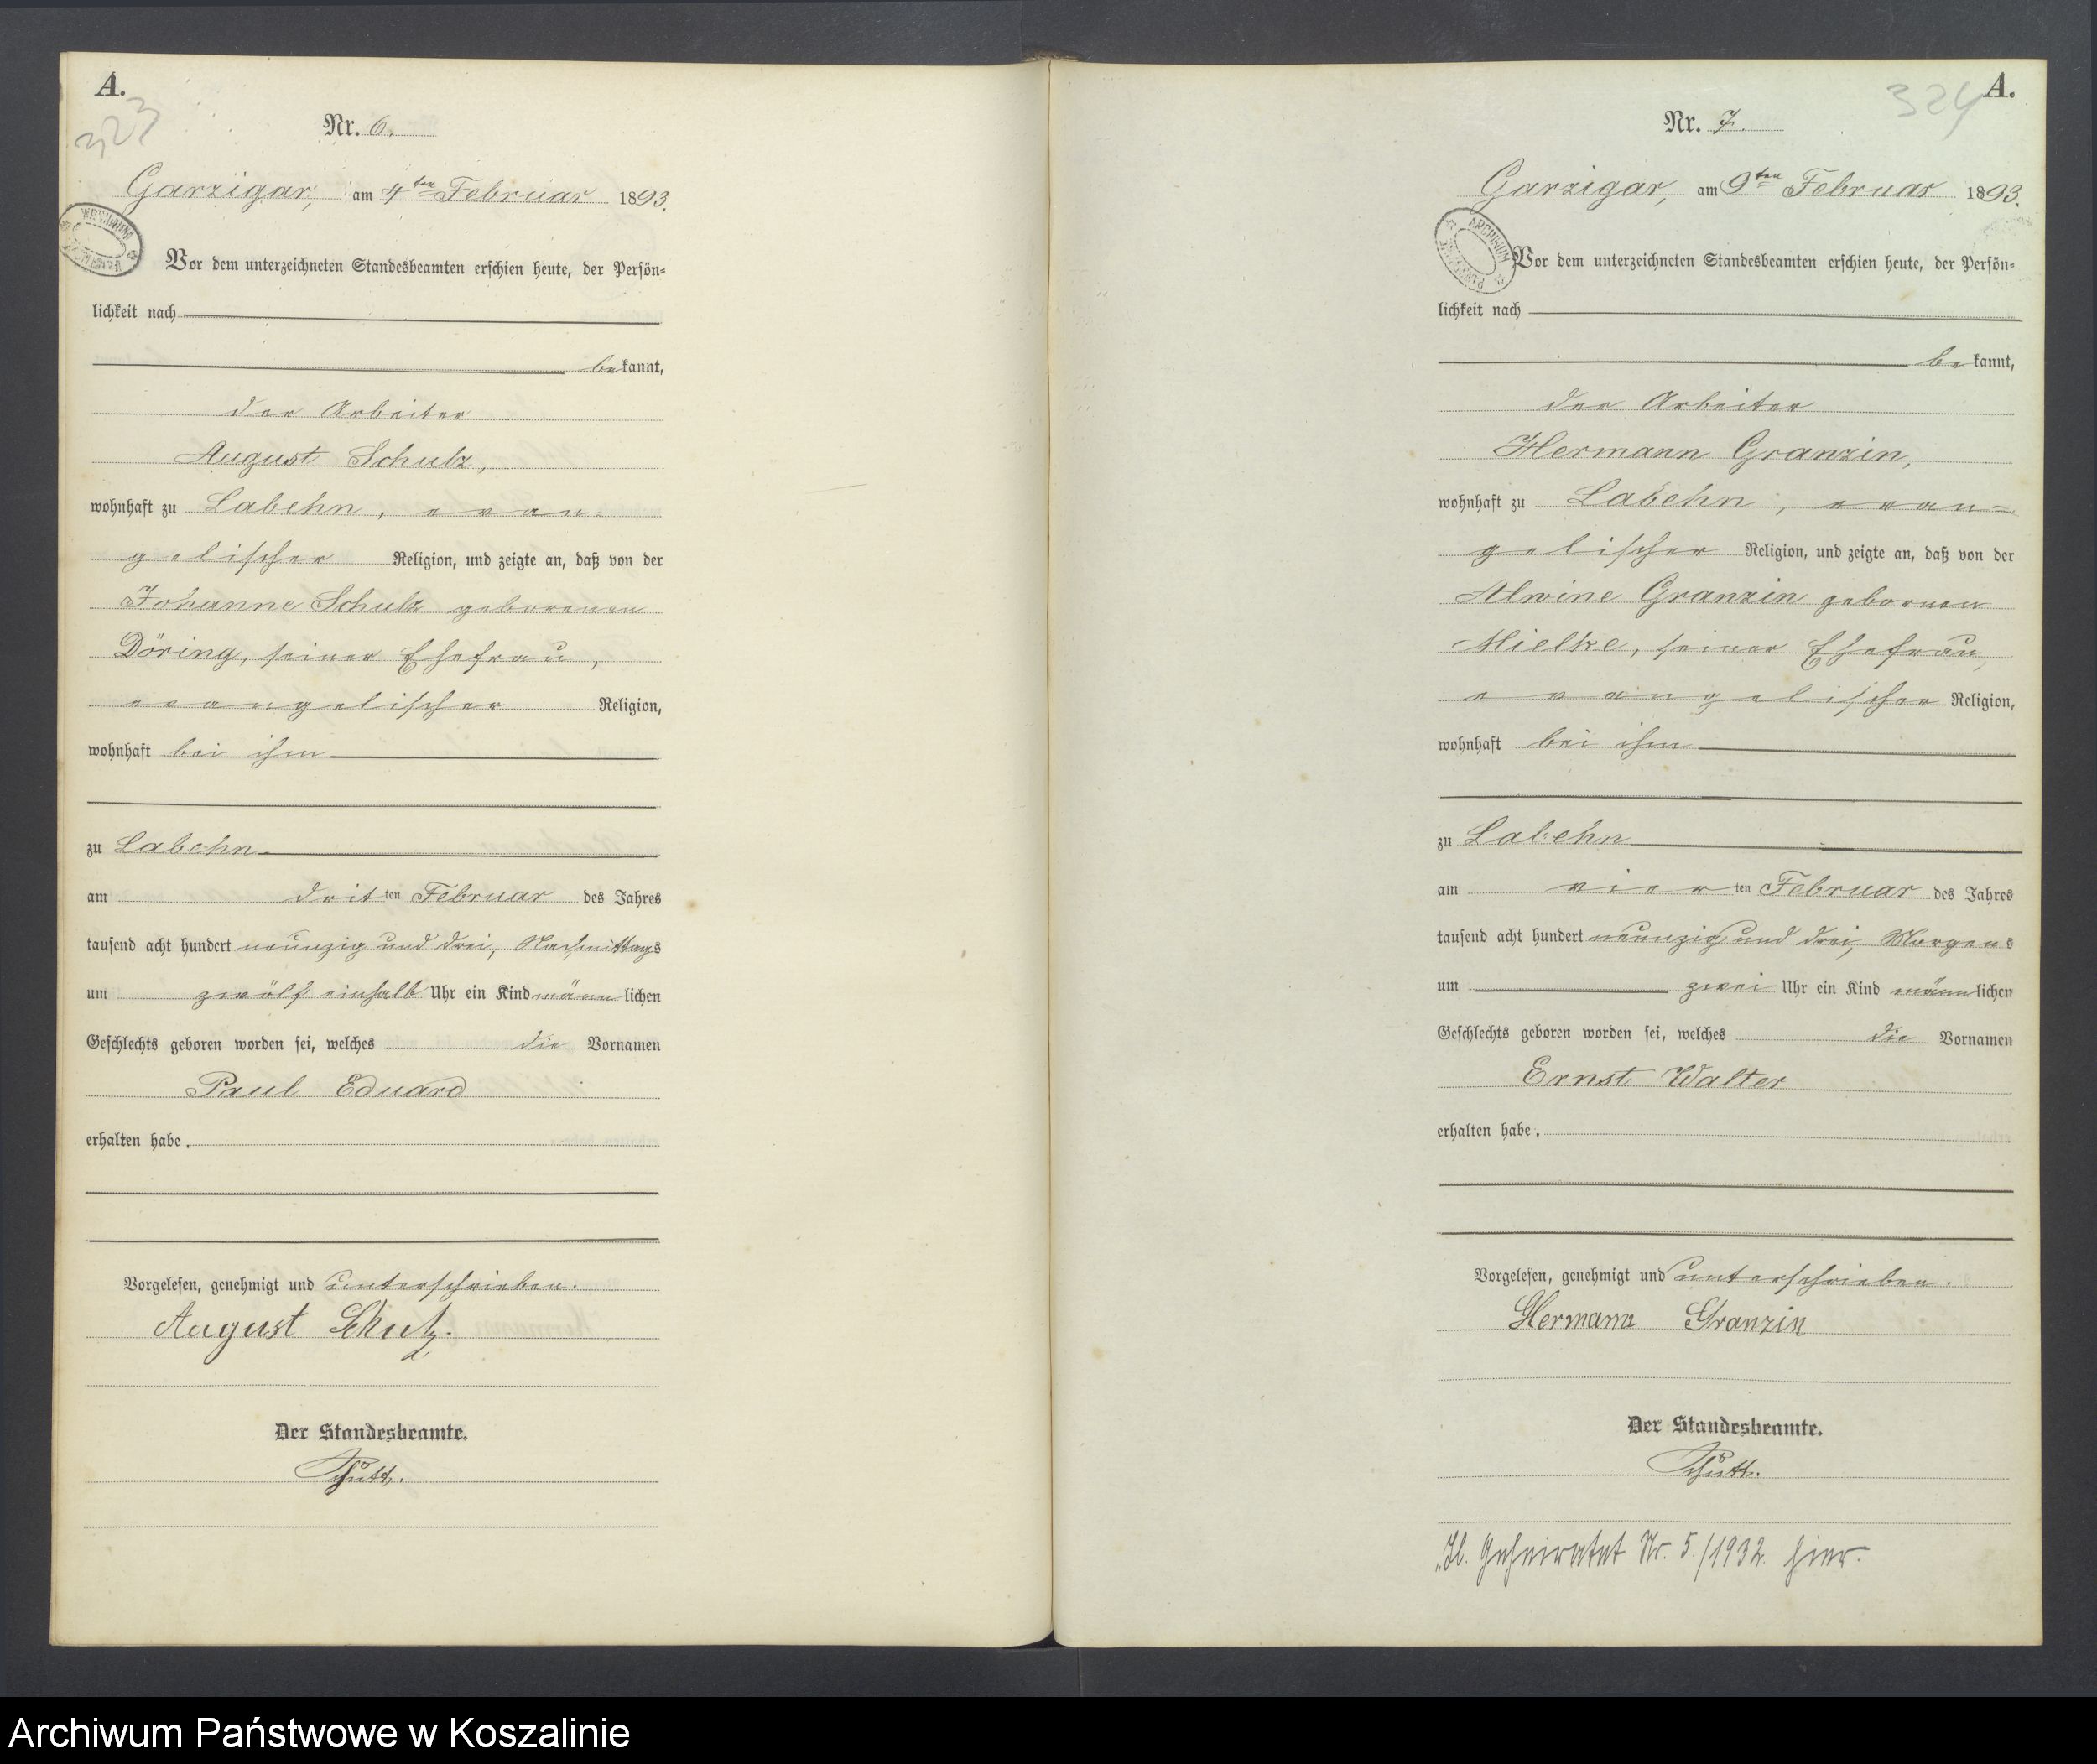 A.
323
Nr. 6.
Garzigar, am 4ten Februar 1893.
Vor dem unterzeichneten Standesbeamten erschien heute, der Persön-
lichkeit nach
bekannt,
der Arbeiter
August Schulz,
wohnhaft zu Labehn, evan-
gelischer Religion, und zeigte an, daß von der
Johanne Schulz geborenen
Döring, seiner Ehefrau,
evangelischer Religion,
wohnhaft bei ihm
zu Labehn
am dritten Februar des Jahres
tausend acht hundert neunzig und drei, Nachmittags
um zwölf einhalb Uhr ein Kind männlichen
Geschlechts geboren worden sei, welches die Vornamen
Paul Eduard
erhalten habe.
Vorgelesen, genehmigt und unterschrieben.
August Schulz.
Der Standesbeamte.
A.
324
Nr. 7.
Garzigar, am 9ten Februar 1893.
ARCHIWUM
Vor dem unterzeichneten Standesbeamten erschien heute, der Persön-
lichkeit nach
bekannt,
der Arbeiter
Hermann Granzin,
wohnhaft zu Labehn, evan=
gelischer Religion, und zeigte an, daß von der
Alwine Granzin gebornen
Mielke, seiner Ehefrau,
evangelischer Religion,
wohnhaft bei ihm
zu Labehn
am vierten Februar des Jahres
tausend acht hundert neunzig und drei, Morgens
um zwei Uhr ein Kind männlichen
Geschlechts geboren worden sei, welches die Vornamen
Ernst Walter
erhalten habe.
Vorgelesen, genehmigt und unterschrieben.
Hermann Granzin
Der Standesbeamte.
geheiratet Nr. 5/1932. hier.
Archiwum Państwowe w Koszalinie